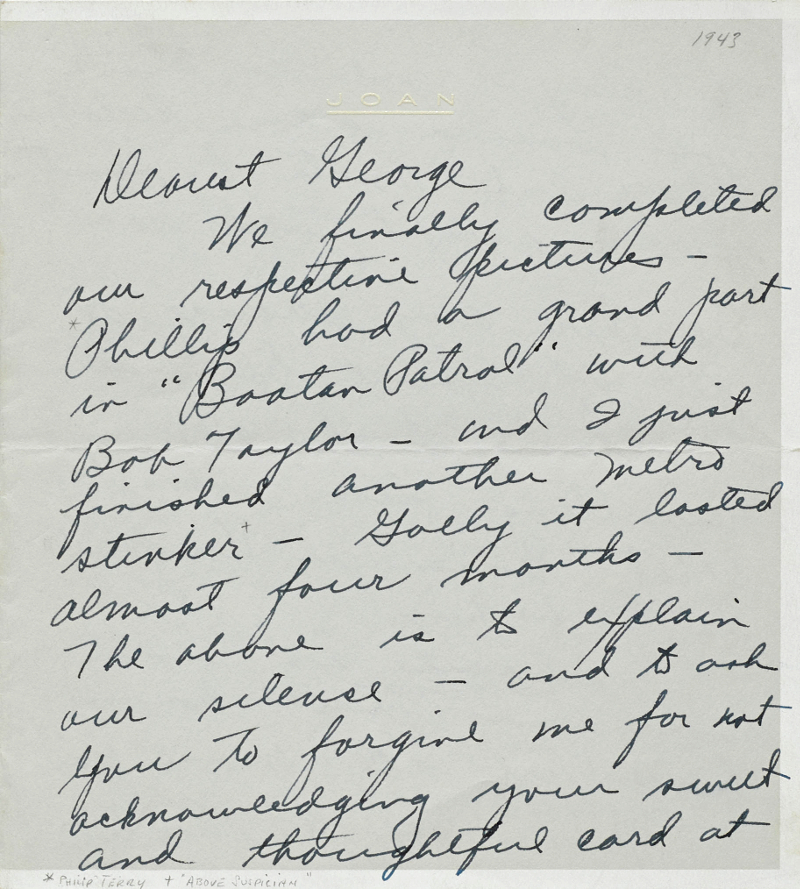 1943
JOAN
Dearest George
We finally completed
our respective pictures -
*Phillip had a grand part
in "Baatan Patrol" with
Bob Taylor - and I just
finished another metro
stinker+ - Golly it lasted
almost four months -
The above is to explain
our silence - and to ask
you to forgive me for not
acknowledging your sweet
and thoughtful card at
* PHILIP TERRY + "ABOVE SUSPICIAN"